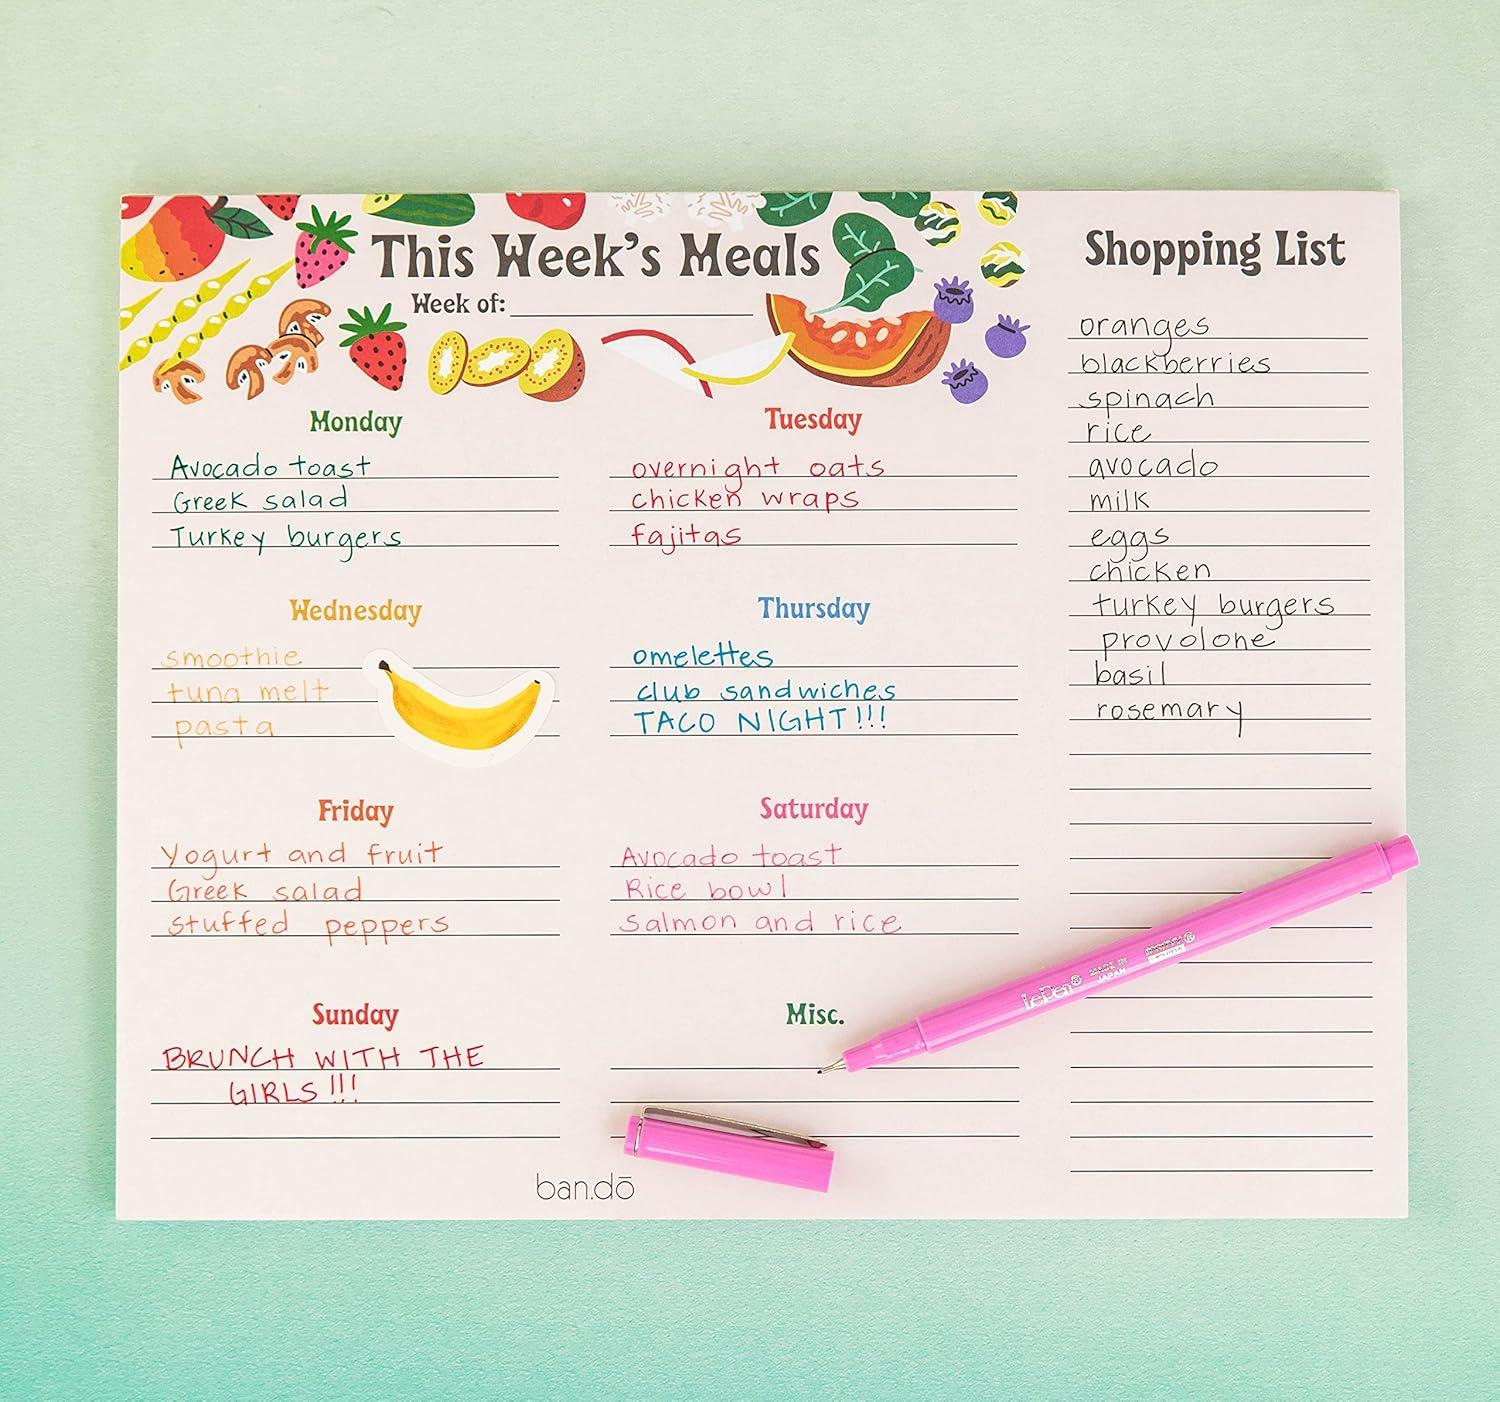 This Week's Meals
Week of:
Monday
Avocado toast
Greek salad
Turkey burgers
Tuesday
overnight oats
chicken wraps
fajitas
Wednesday
smoothie
tuna melt
pasta
Thursday
omelettes
club sandwiches
TACO NIGHT!!!
Friday
Yogurt and fruit
Greek salad
stuffed peppers
Saturday
Avocado toast
Rice bowl
salmon and rice
Sunday
BRUNCH WITH THE
GIRLS!!!
Misc.
ban.dō
Shopping List
oranges
blackberries
spinach
rice
avocado
milk
eggs
chicken
turkey burgers
provolone
basil
rosemary
LePen®
MADE IN
JAPAN